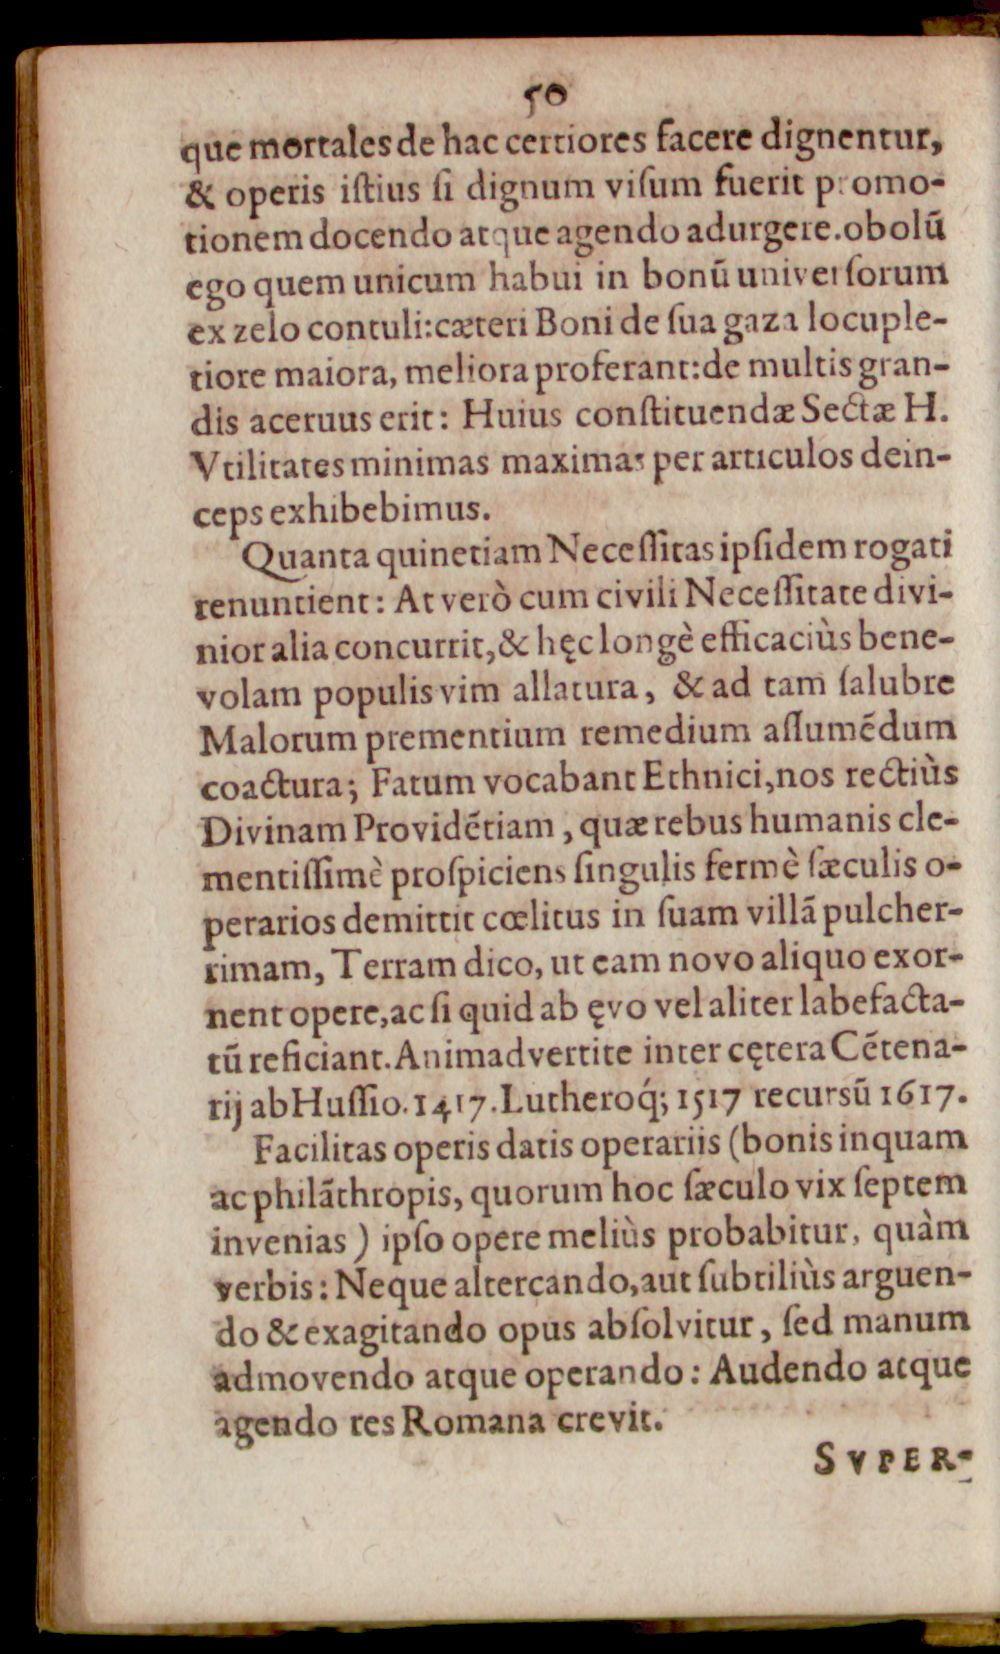 50
que mortales de hac certiores facere dignentur,
& operis iſtius ſi dignum viſum fuerit promo-
tionem docendo atque agendo adurgere. obolū
ego quem unicum habui in bonū univerſorum
ex zelo contuli: cæteri Boni de ſua gaza locuple-
tiore maiora, meliora proferant: de multis gran-
dis aceruus erit: Huius conſtituendæ Sectæ H.
Vtilitates minimas maximas per articulos dein-
ceps exhibebimus.
Quanta quinetiam Neceſſitas ipſidem rogati
renuntient: At verò cum civili Neceſſitate divi-
nior alia concurrit, & hęc longè efficaciùs bene-
volam populis vim allatura, & ad tam ſalubre
Malorum prementium remedium aſſumēdum
coactura; Fatum vocabant Ethnici, nos rectiùs
Divinam Providētiam, quæ rebus humanis cle-
mentiſſimè proſpiciens ſingulis fermè ſæculis o-
perarios demittit cœlitus in ſuam villā pulcher-
rimam, Terram dico, ut eam novo aliquo exor-
nent opere, ac ſi quid ab ęvo vel aliter labefacta-
tū reficiant. Animadvertite inter cętera Cētena-
rij ab Huſſio. 1417. Lutheroq́; 1517 recursū 1617.
Facilitas operis datis operariis (bonis inquam
ac philāthropis, quorum hoc ſæculo vix ſeptem
invenias) ipſo opere meliùs probabitur, quàm
verbis: Neque altercando, aut ſubtiliùs arguen-
do & exagitando opus abſolvitur, ſed manum
admovendo atque operando: Audendo atque
agendo res Romana crevit.
SVPER-